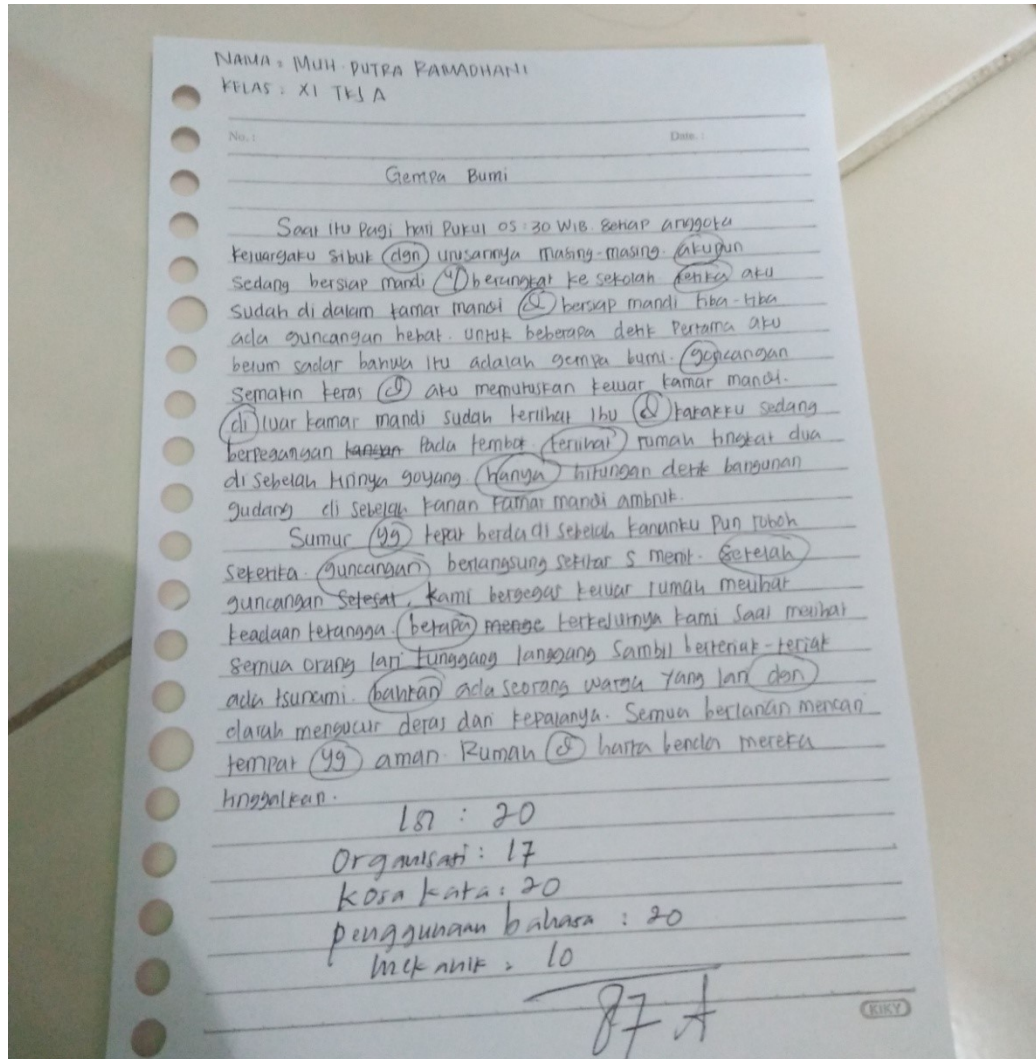 NAMA : MUH. PUTRA RAMADHANI
KELAS : XI TKJ A
No. :
Date. :
Gempa Bumi
Saat itu pagi hari Pukul 05:30 WIB. Setiap anggota
keluargaku sibuk dgn urusannya masing-masing. akupun
sedang bersiap mandi berangkat ke sekolah ketika aku
sudah di dalam kamar mandi & bersiap mandi tiba-tiba
ada guncangan hebat. untuk beberapa detik Pertama aku
belum sadar bahwa itu adalah gempa bumi. goncangan
Semakin keras & aku memutuskan keluar kamar mandi.
di luar kamar mandi sudah terlihat Ibu & kakakku sedang
berpegangan Pada tembok terlihat rumah tingkat dua
di sebelah kirinya goyang. hanya hitungan detik bangunan
gudang di sebelah kanan kamar mandi ambruk.
Sumur yg tepat berda di sebelah kananku Pun roboh
seketika. guncangan berlangsung sekitar 5 menit. Setelah
guncangan selesai, kami bergegas keluar rumah melihat
keadaan tetangga. betapa menge terkejutnya kami Saat melihat
semua orang lari tunggang langgang Sambil berteriak-teriak
ada tsunami. bahkan ada seorang warga yang lari dgn
darah mengucur deras dari kepalanya. Semua berlarian mencari
tempat yg aman. Rumah & harta benda mereka
tinggalkan.
Isi : 20
Organisasi : 17
kosa kata : 20
penggunaan bahasa : 20
mekanik : 10
87 A
KIKY